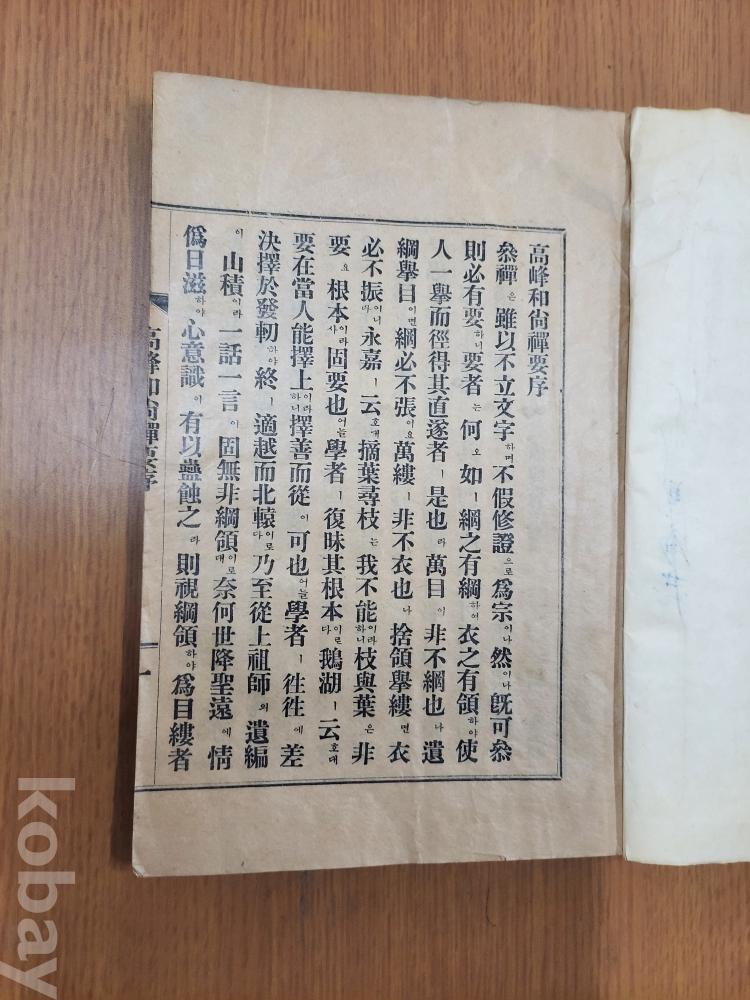 高峰和尙禪要序
叅禪은雖以不立文字하며不假修證으로爲宗이나然이나旣可叅
則必有要하니要者는何오如ㅣ網之有綱하여衣之有領하야使
人一擧而徑得其直遂者ㅣ是也라萬目이非不網也나遺
綱擧目이면網必不張이요萬縷ㅣ非不衣也나捨領擧縷면衣
必不振이니라永嘉ㅣ云호대摘葉尋枝는我不能이라하니枝與葉은非
要요根本이라사固要也어늘學者ㅣ復昧其根本이로다鵝湖ㅣ云호대
要在當人能擇上이라하니擇善而從이可也어늘學者ㅣ徃徃에差
決擇於發軔하야終ㅣ適越而北轅이로다乃至從上祖師의遺編
이山積이라一話一言이固無非綱領이로대奈何世降聖遠에情
僞日滋하야心意識이有以蠱蝕之라則視綱領하야爲目縷者
高峰和尙禪要序
一
kobay